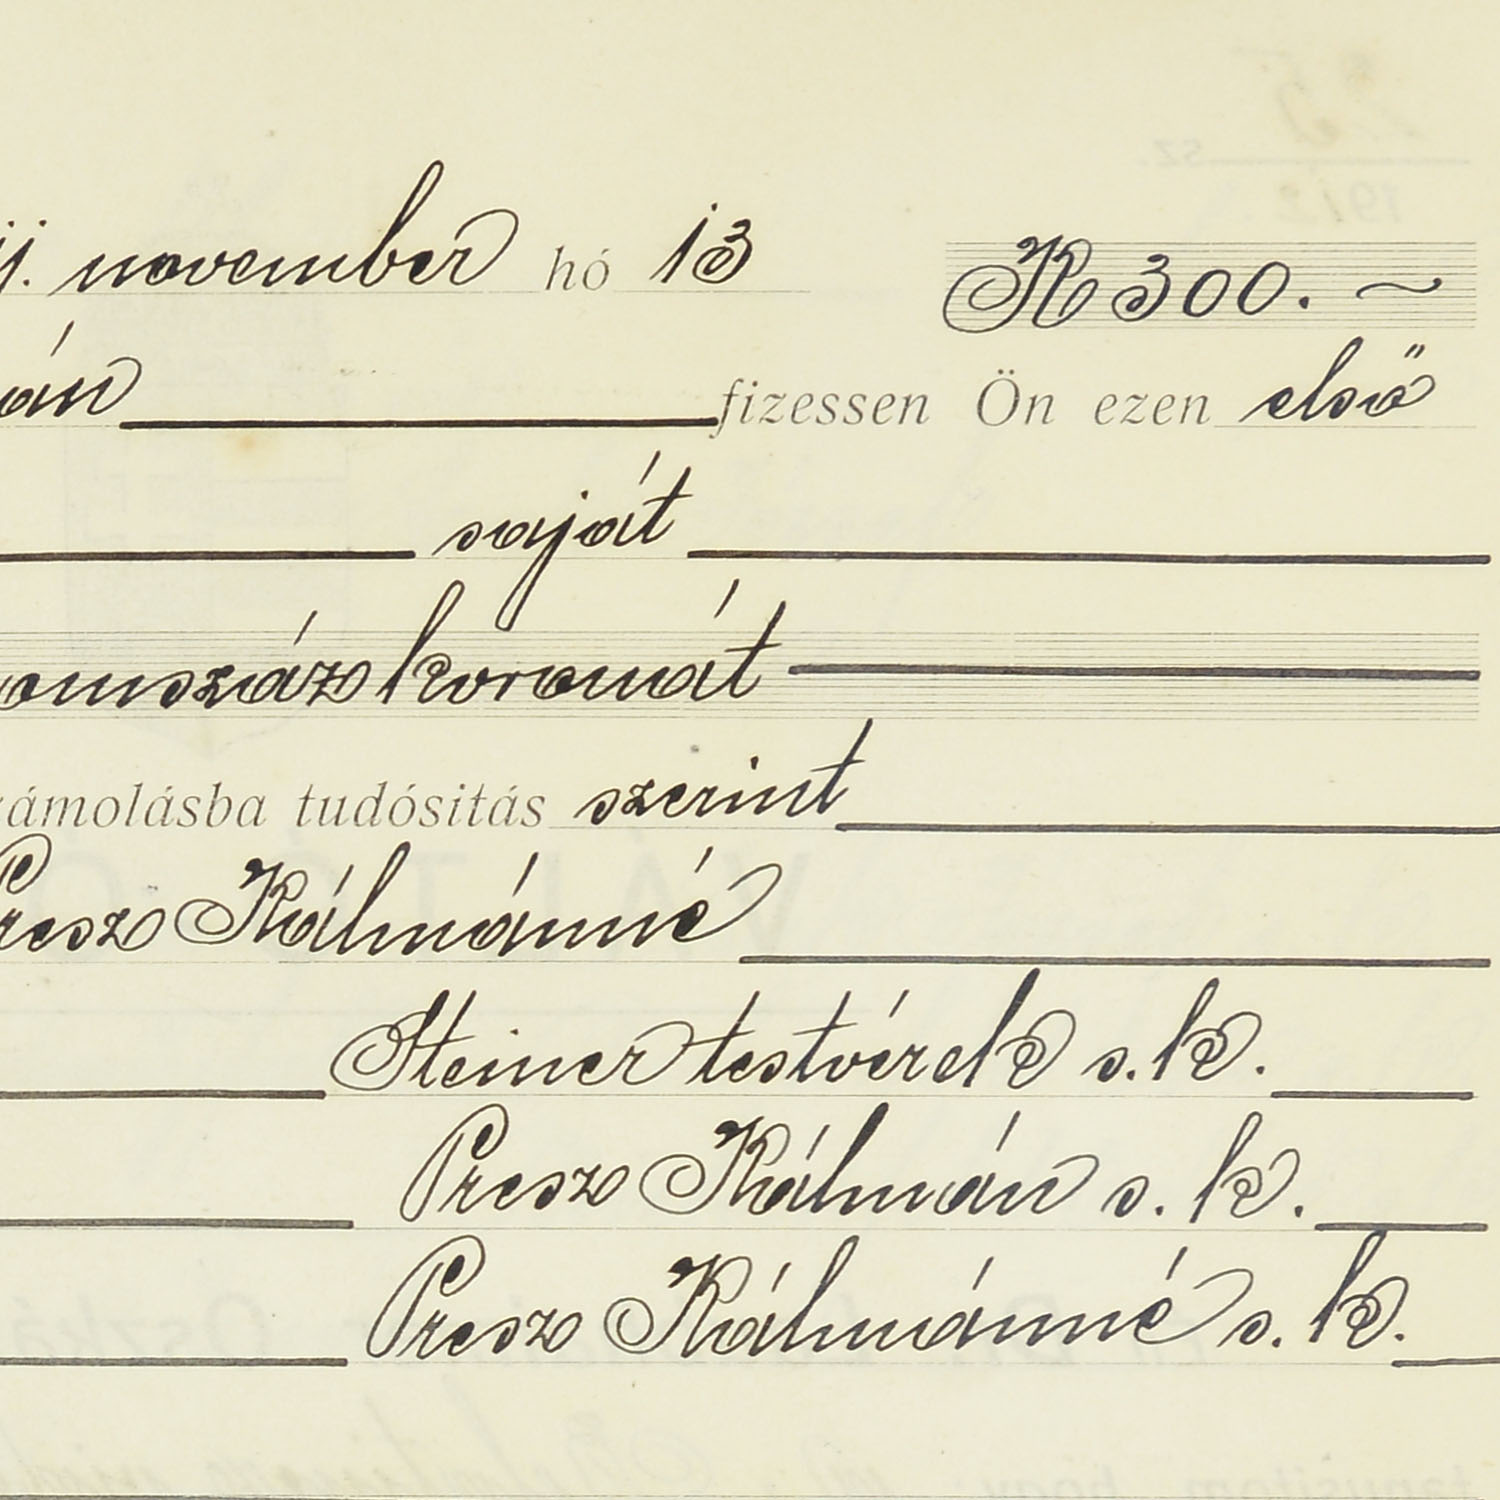 11. november hó 13 K 300. ~
án fizessen Ön ezen első
saját
omszáz koronát
zámolásba tudósitás szerint
Presz Kálmánné
Steiner testvérek s. k.
Presz Kálmán s. k.
Presz Kálmánné s. k.